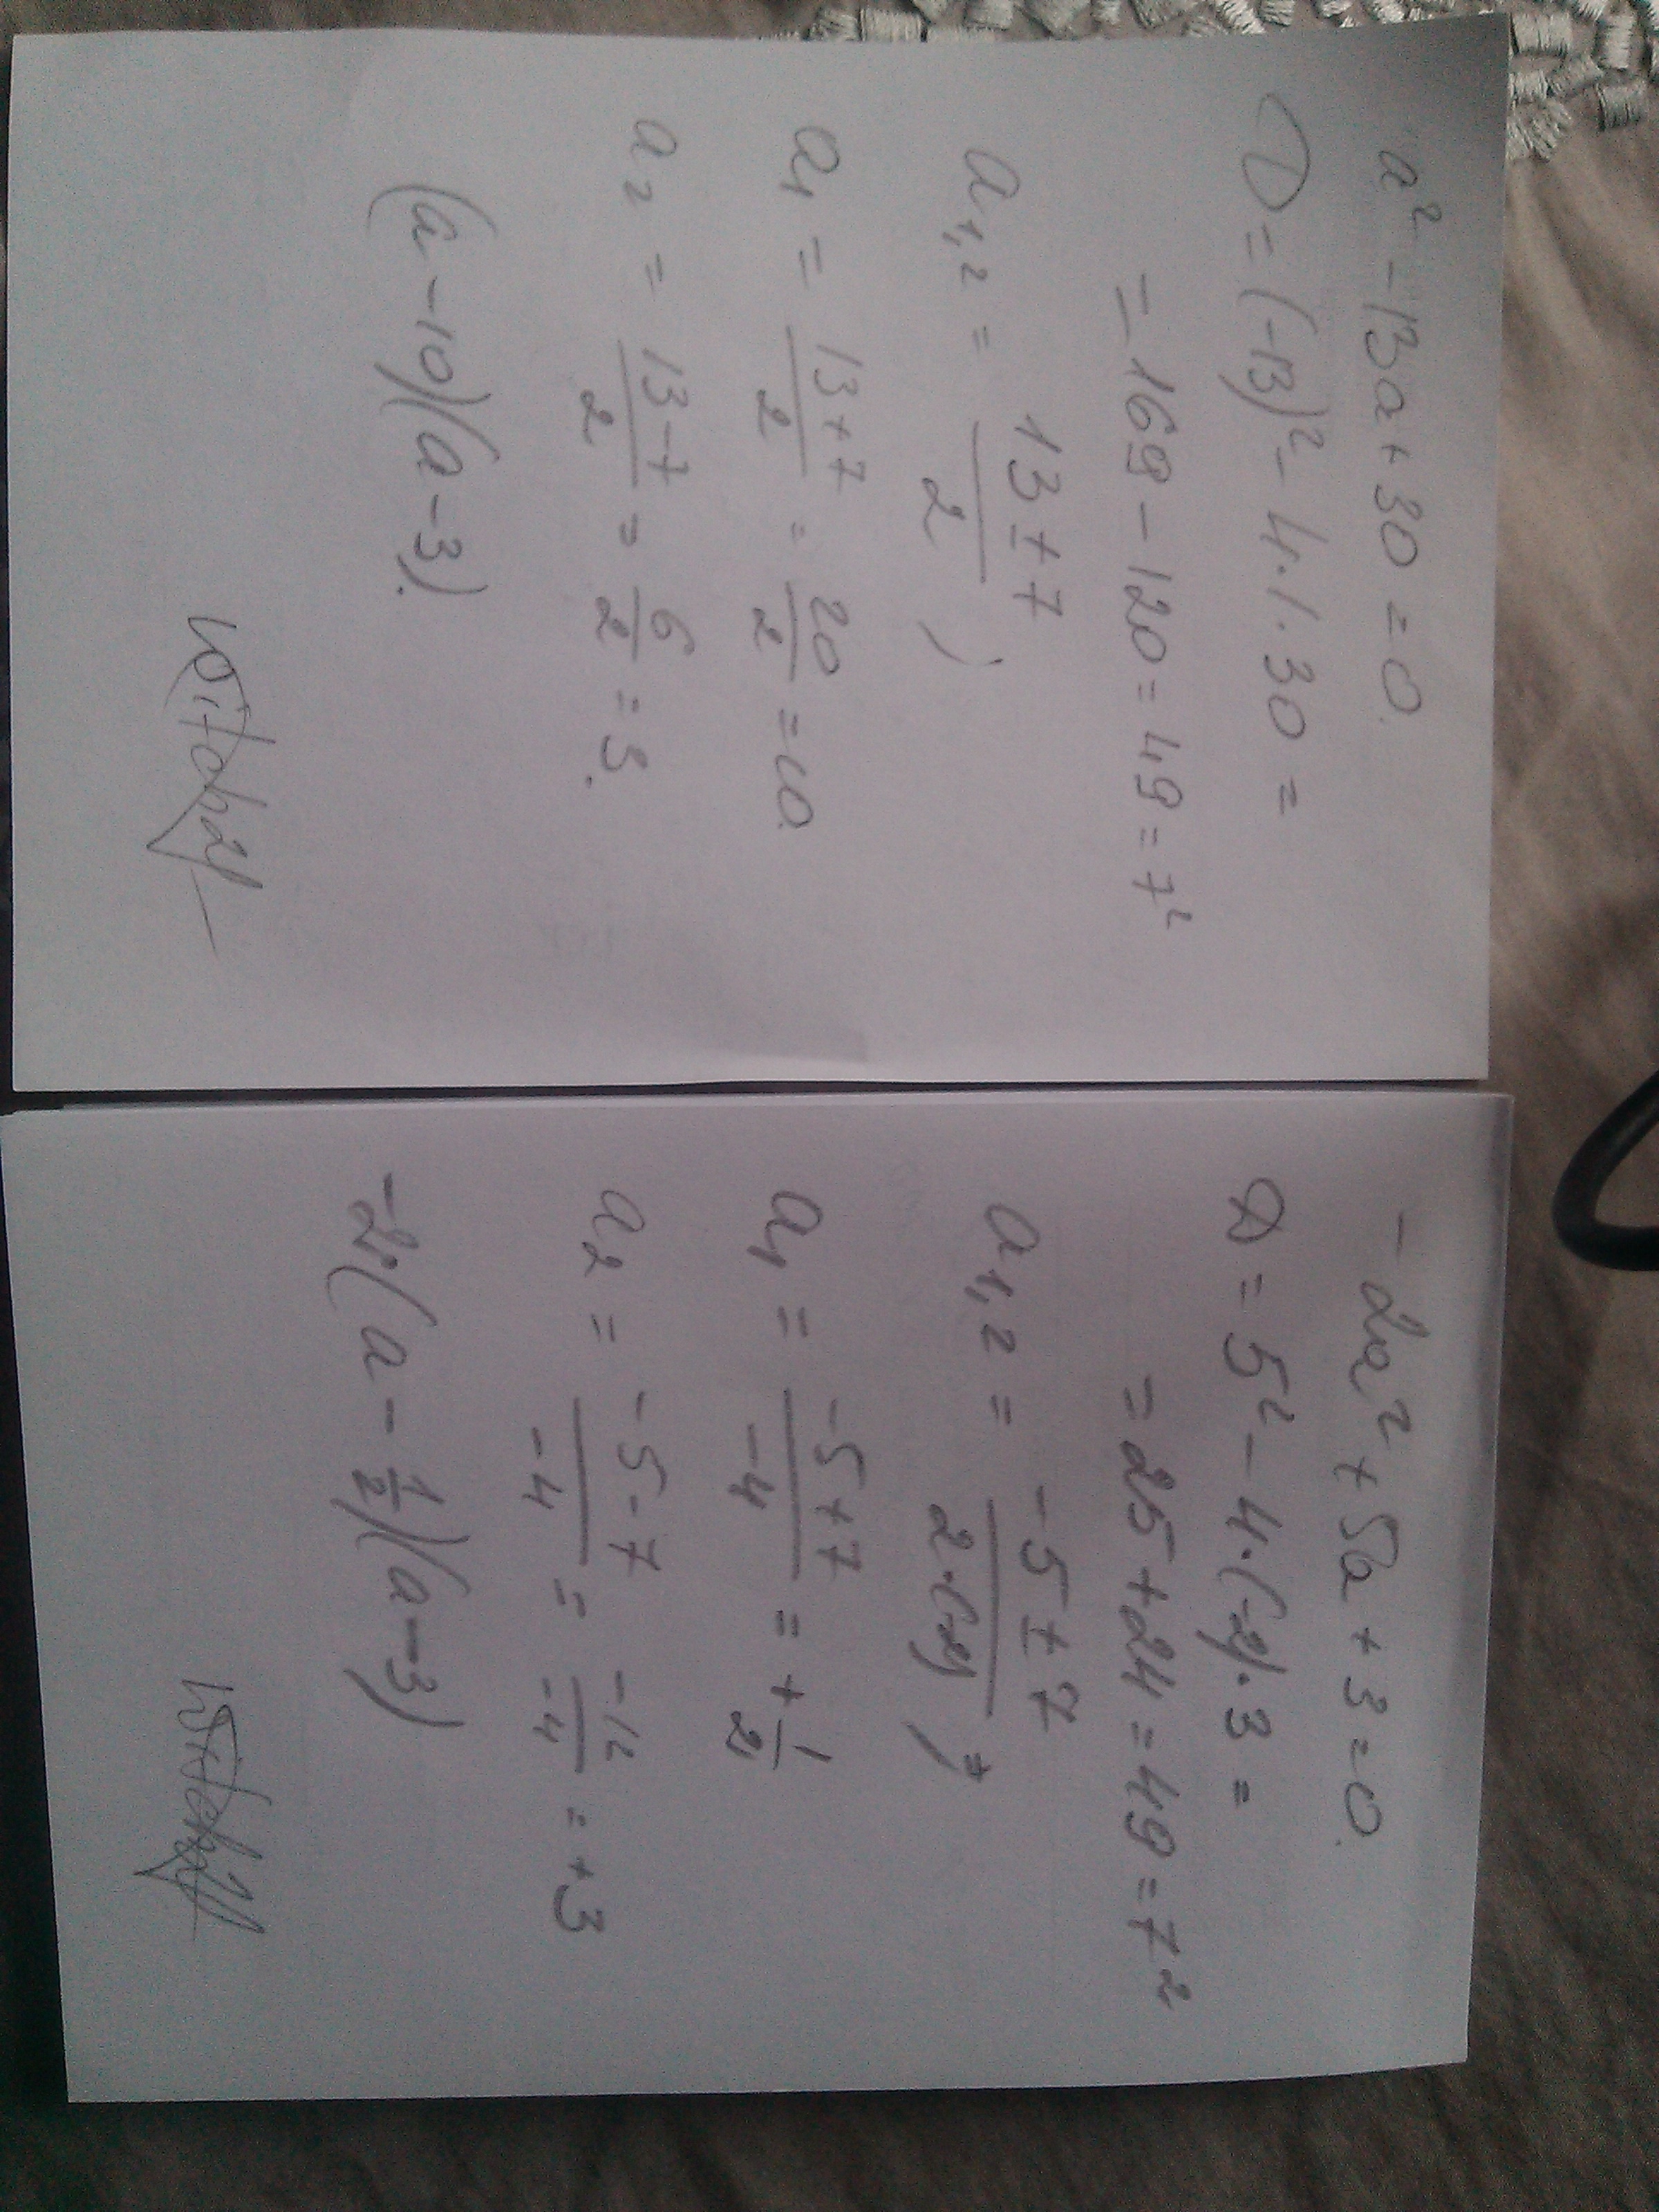 a² - 13a + 30 = 0.
D = (-13)² - 4·1·30 =
= 169 - 120 = 49 = 7²
a₁,₂ = (13 ± 7)/2 ;
a₁ = (13 + 7)/2 = 20/2 = 10.
a₂ = (13 - 7)/2 = 6/2 = 3.
(a - 10)(a - 3).
- 2a² + 5a + 3 = 0.
D = 5² - 4·(-2)·3 =
= 25 + 24 = 49 = 7²
a₁,₂ = (-5 ± 7)/(2·(-2)) ;
a₁ = (-5 + 7)/-4 = + 1/2
a₂ = (-5 - 7)/-4 = -12/-4 = +3
-2·(a - 1/2)(a - 3)